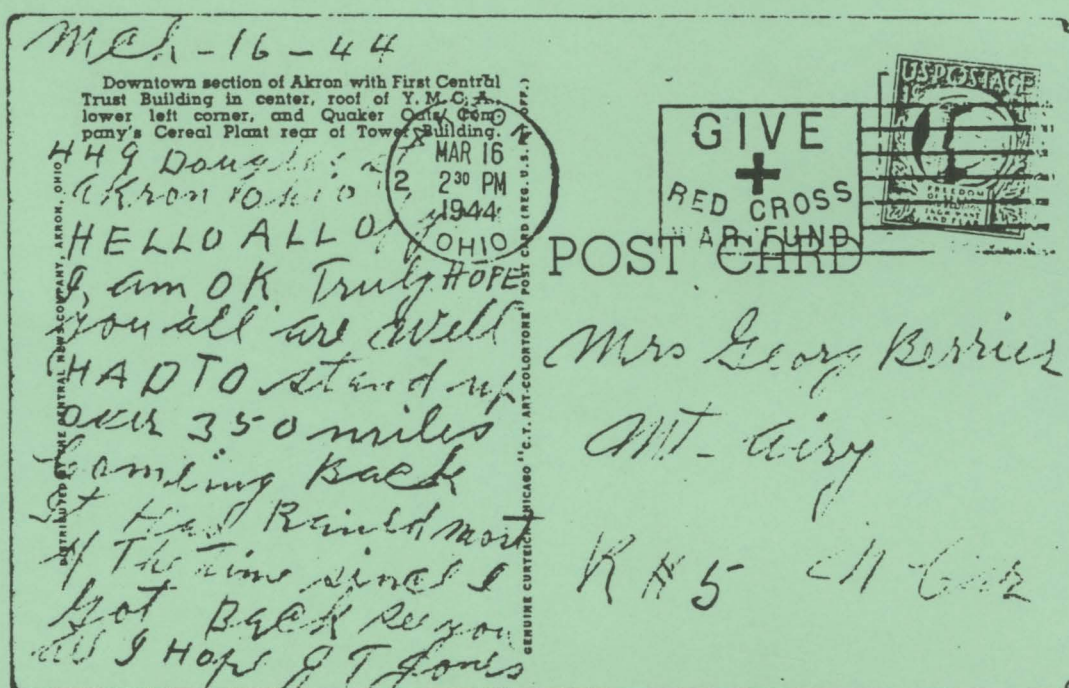 Mch-16-44
Downtown section of Akron with First Central
Trust Building in center, roof of Y. M. C. A.,
lower left corner, and Quaker Oats Com-
pany's Cereal Plant rear of Tower Building.
449 Douglas
Akron Ohio
HELLO ALL Of you
I, am OK Truly HOPE
you all are well
HAD TO stand up
over 350 miles
Comeing Back
It Has Rained most
of The Time since I
got Back see you
all I Hope J T Jones
DISTRIBUTED BY THE CENTRAL NEWS COMPANY, AKRON, OHIO
GENUINE CURTEICH-CHICAGO "C.T. ART-COLORTONE" POST CARD (REG. U.S. PAT. OFF.)
AKRON
MAR 16
2 2 30 PM
1944
OHIO
GIVE
RED CROSS
WAR FUND
U.S. POSTAGE
1
FREEDOM
OF SPEECH
POST CARD
Mrs Georg Berrier
Mt-Airy
R #5 N Car